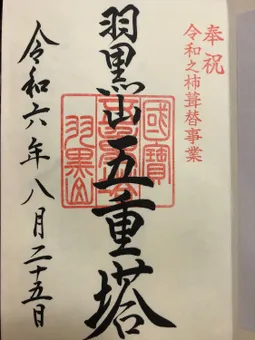 奉祝
令和之杮葺替事業
羽黒山五重塔
國寶
羽黒山
令和六年八月二十五日